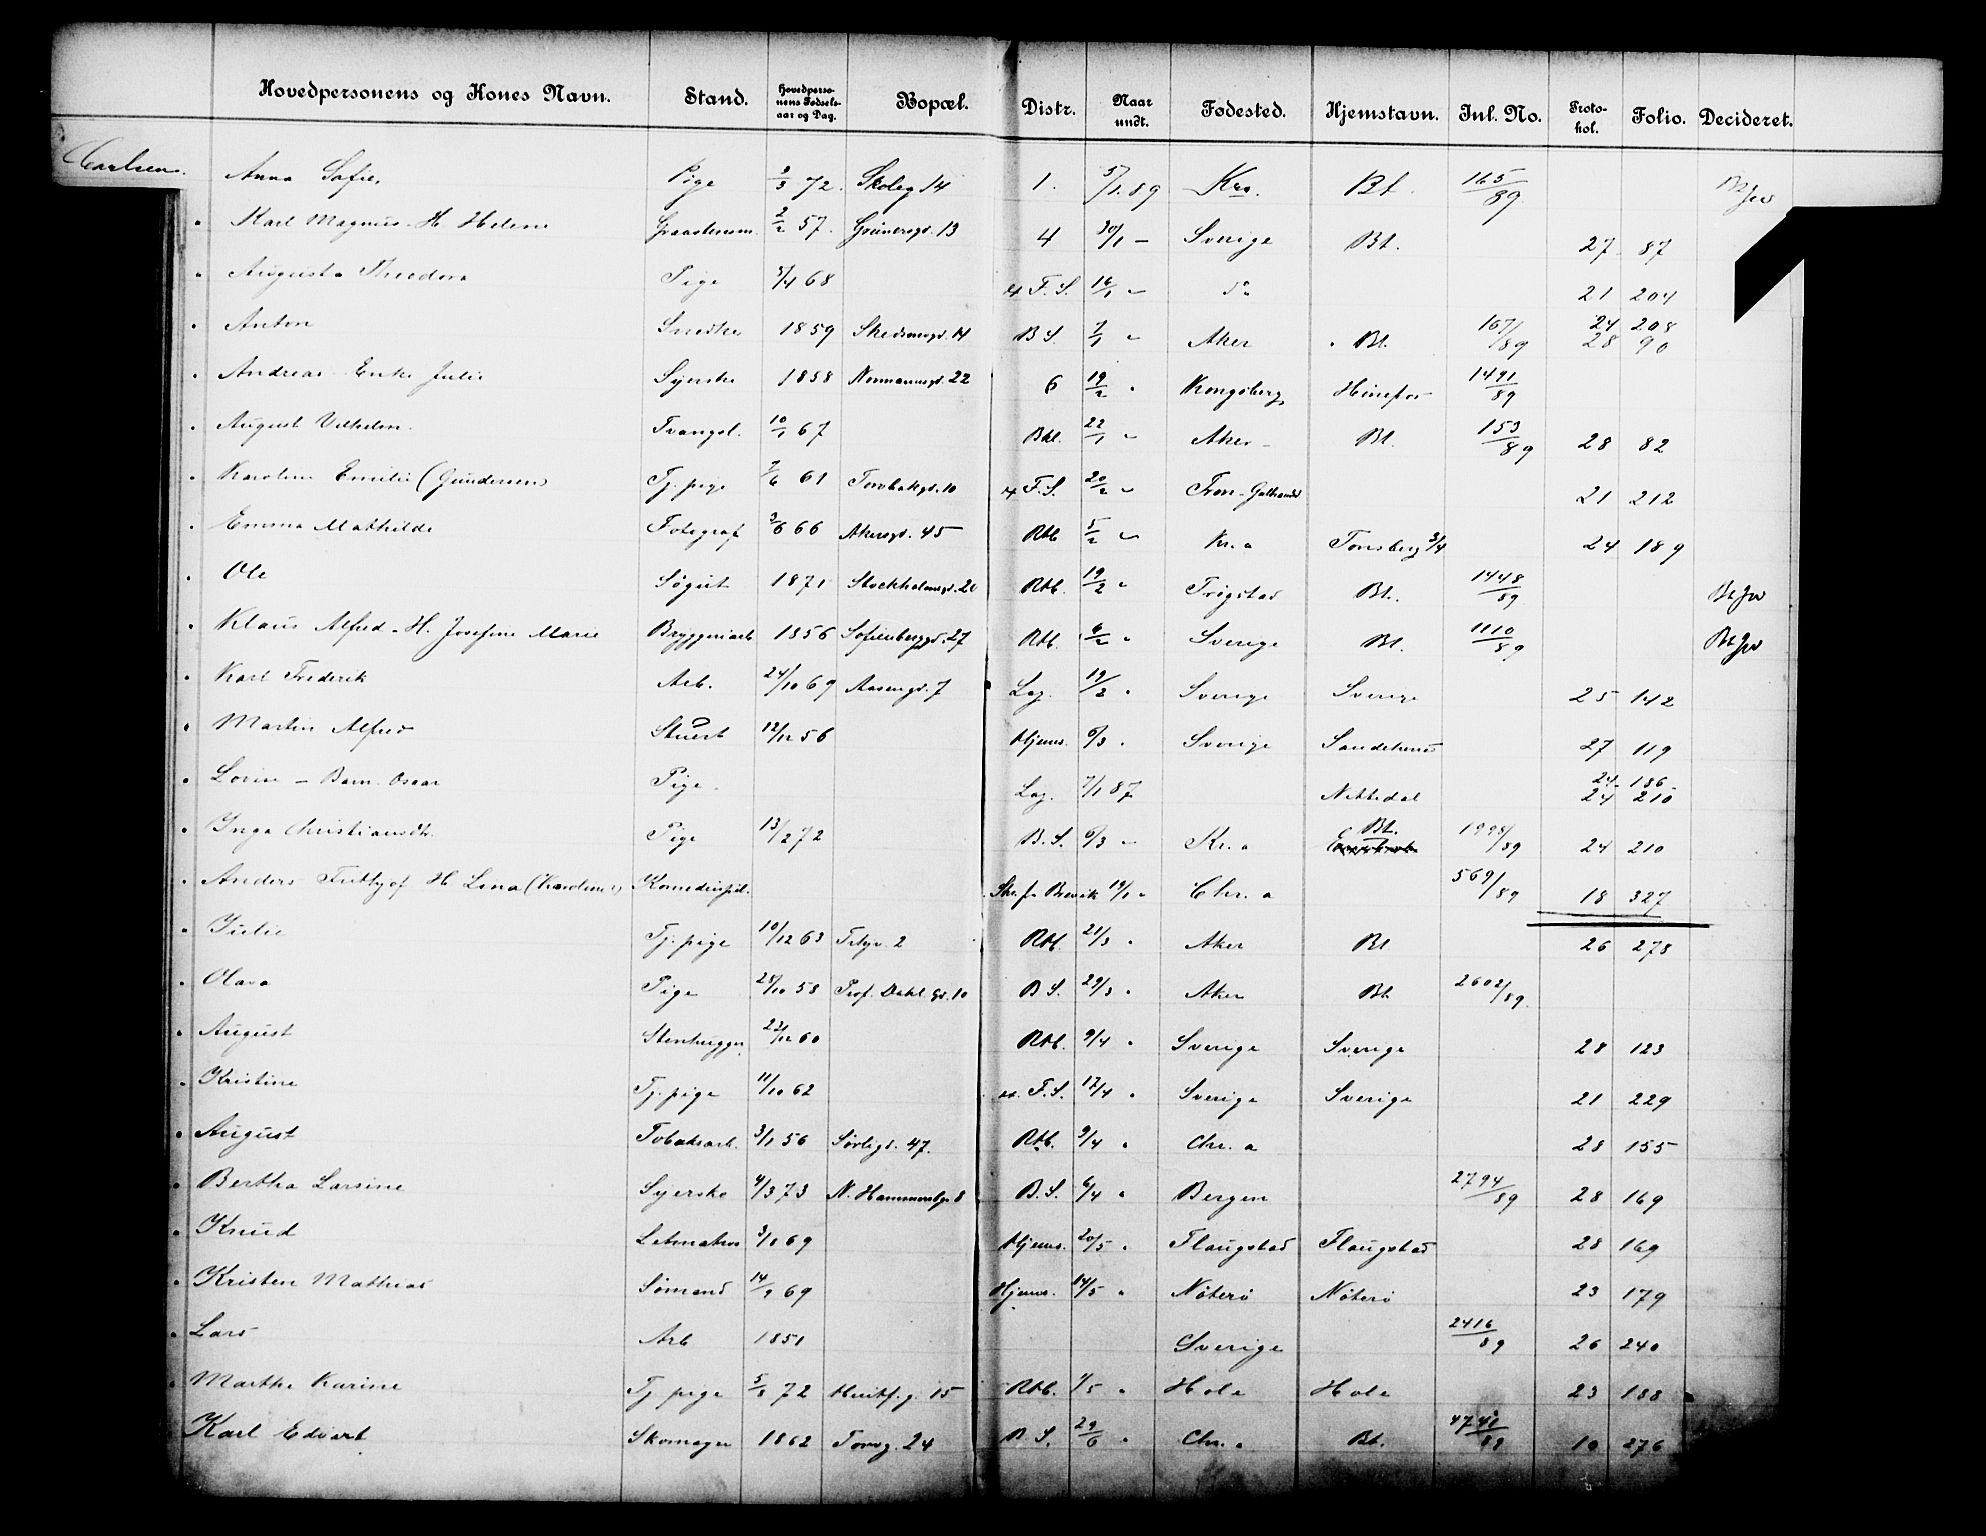 Hovedpersonens og Kones Navn. Stand. Hovedpersonens Fødselsaar og Dag. Bopæl. Distr. Naar undt. Fødested. Hjemstavn. Inl. No. Protokol. Folio. Decideret.
Carlsen. Anna Sofie, Pige 72. Skoleg 14 1. 5/1. 89 Kra. Bt. 165/89
" Karl Magnus - H. Helene 2/2 57. Grünersgd. 13 4 30/1 - Sverige Bt. 27 87
" Augusta Theodora Pige 5/4 68 F. S. 16/1 " do 21 204
" Anton Snedke 1859 14 B S. " Aker " Bt. 167/89 24 208 28 90
" Andrea Julie Syerske 1858 Normannsgd. 22 6 19/2 " Kongsberg Hønefos 1491/89
" August Vilhelm. Tvangsl. 10/1 67 22/1 " Aker - Bt. 153/89 28 82
" Karoline Emilie (Gundersen) Tj. pige 61 Torvbakgd. 10 F. S. 20/2 " 21 212
" Emma Mathilde Fotograf 66 Akersgd. 45 Rtb 5/2 " Kr. a Tønsberg 3/4 24 189
" Ole Søgut 1871 Stockholmsgd. Rtb. 19/2 " Trøgstad Bt. 1448/89
" Klaus Alfred - H. Josefine Marie Bryggeriarb 1856 Sofienberggd. 27 Rtb. 6/2 " Sverige Bt. 1110/89
" Karl Frederik Arb. 24/10 69 Aasengd. 7 Lag. 19/2 " Sverige Sverige 25 142
" Martin Alfred Stuert 12/12 56 Hjems. 6/3 " Sverige Sandeherred 27 119
" Lovise - Barn. Oscar Pige. Lag. 7/1 87 Nittedal 24 186 24 210
" Inga Christiansdtr. Pige 13/2 72 B. S. 6/3 " Kr. a Bt. 1998/89 24 210
" Anders H. Lina (Karoline) 19/1 " Chr. a 569/89 18 327
" Julie Tj. pige 10/12 63 2 Rtb. 21/3 " Aker Bt 26 278
" Olava Pige 28/10 58 Prof. Dahl. Gd. 10 B S. 29/3 " Aker Bt. 2602/89.
" August Stenhugger 22/12 60 Rtb. 9/4 " Sverige Sverige 28 123
" Kristine Tj. pige 11/10 62 F. S. 12/4 " Sverige Sverige 21 229
" August Tobaksarb. 3/1 56 Sørligd. 47. Rtb. 9/4 " Chr. a 28 155
" Bertha Larsine Syerske 4/3 73 8 B. S. 6/4 " Bergen 2794/89 28 169
" Knud 69 Hjems. 20/5 " Flaugstad Flaugstad 28 169
" Kristen Mathias Sømand 14/9 69 Hjems. 14/5 " Nøterø Nøterø 23 179
" Lars Arb 1851 Sverige 2416/89 26 240
" Marthe Karine Tj. pige 72 15 Rtb. 1/5 " Hole Hole 23 188
Karl Edvart Skomager 1862 Torvg. 24 B. S. 29/6 " Chr. a Bt. 4741/89 10 276